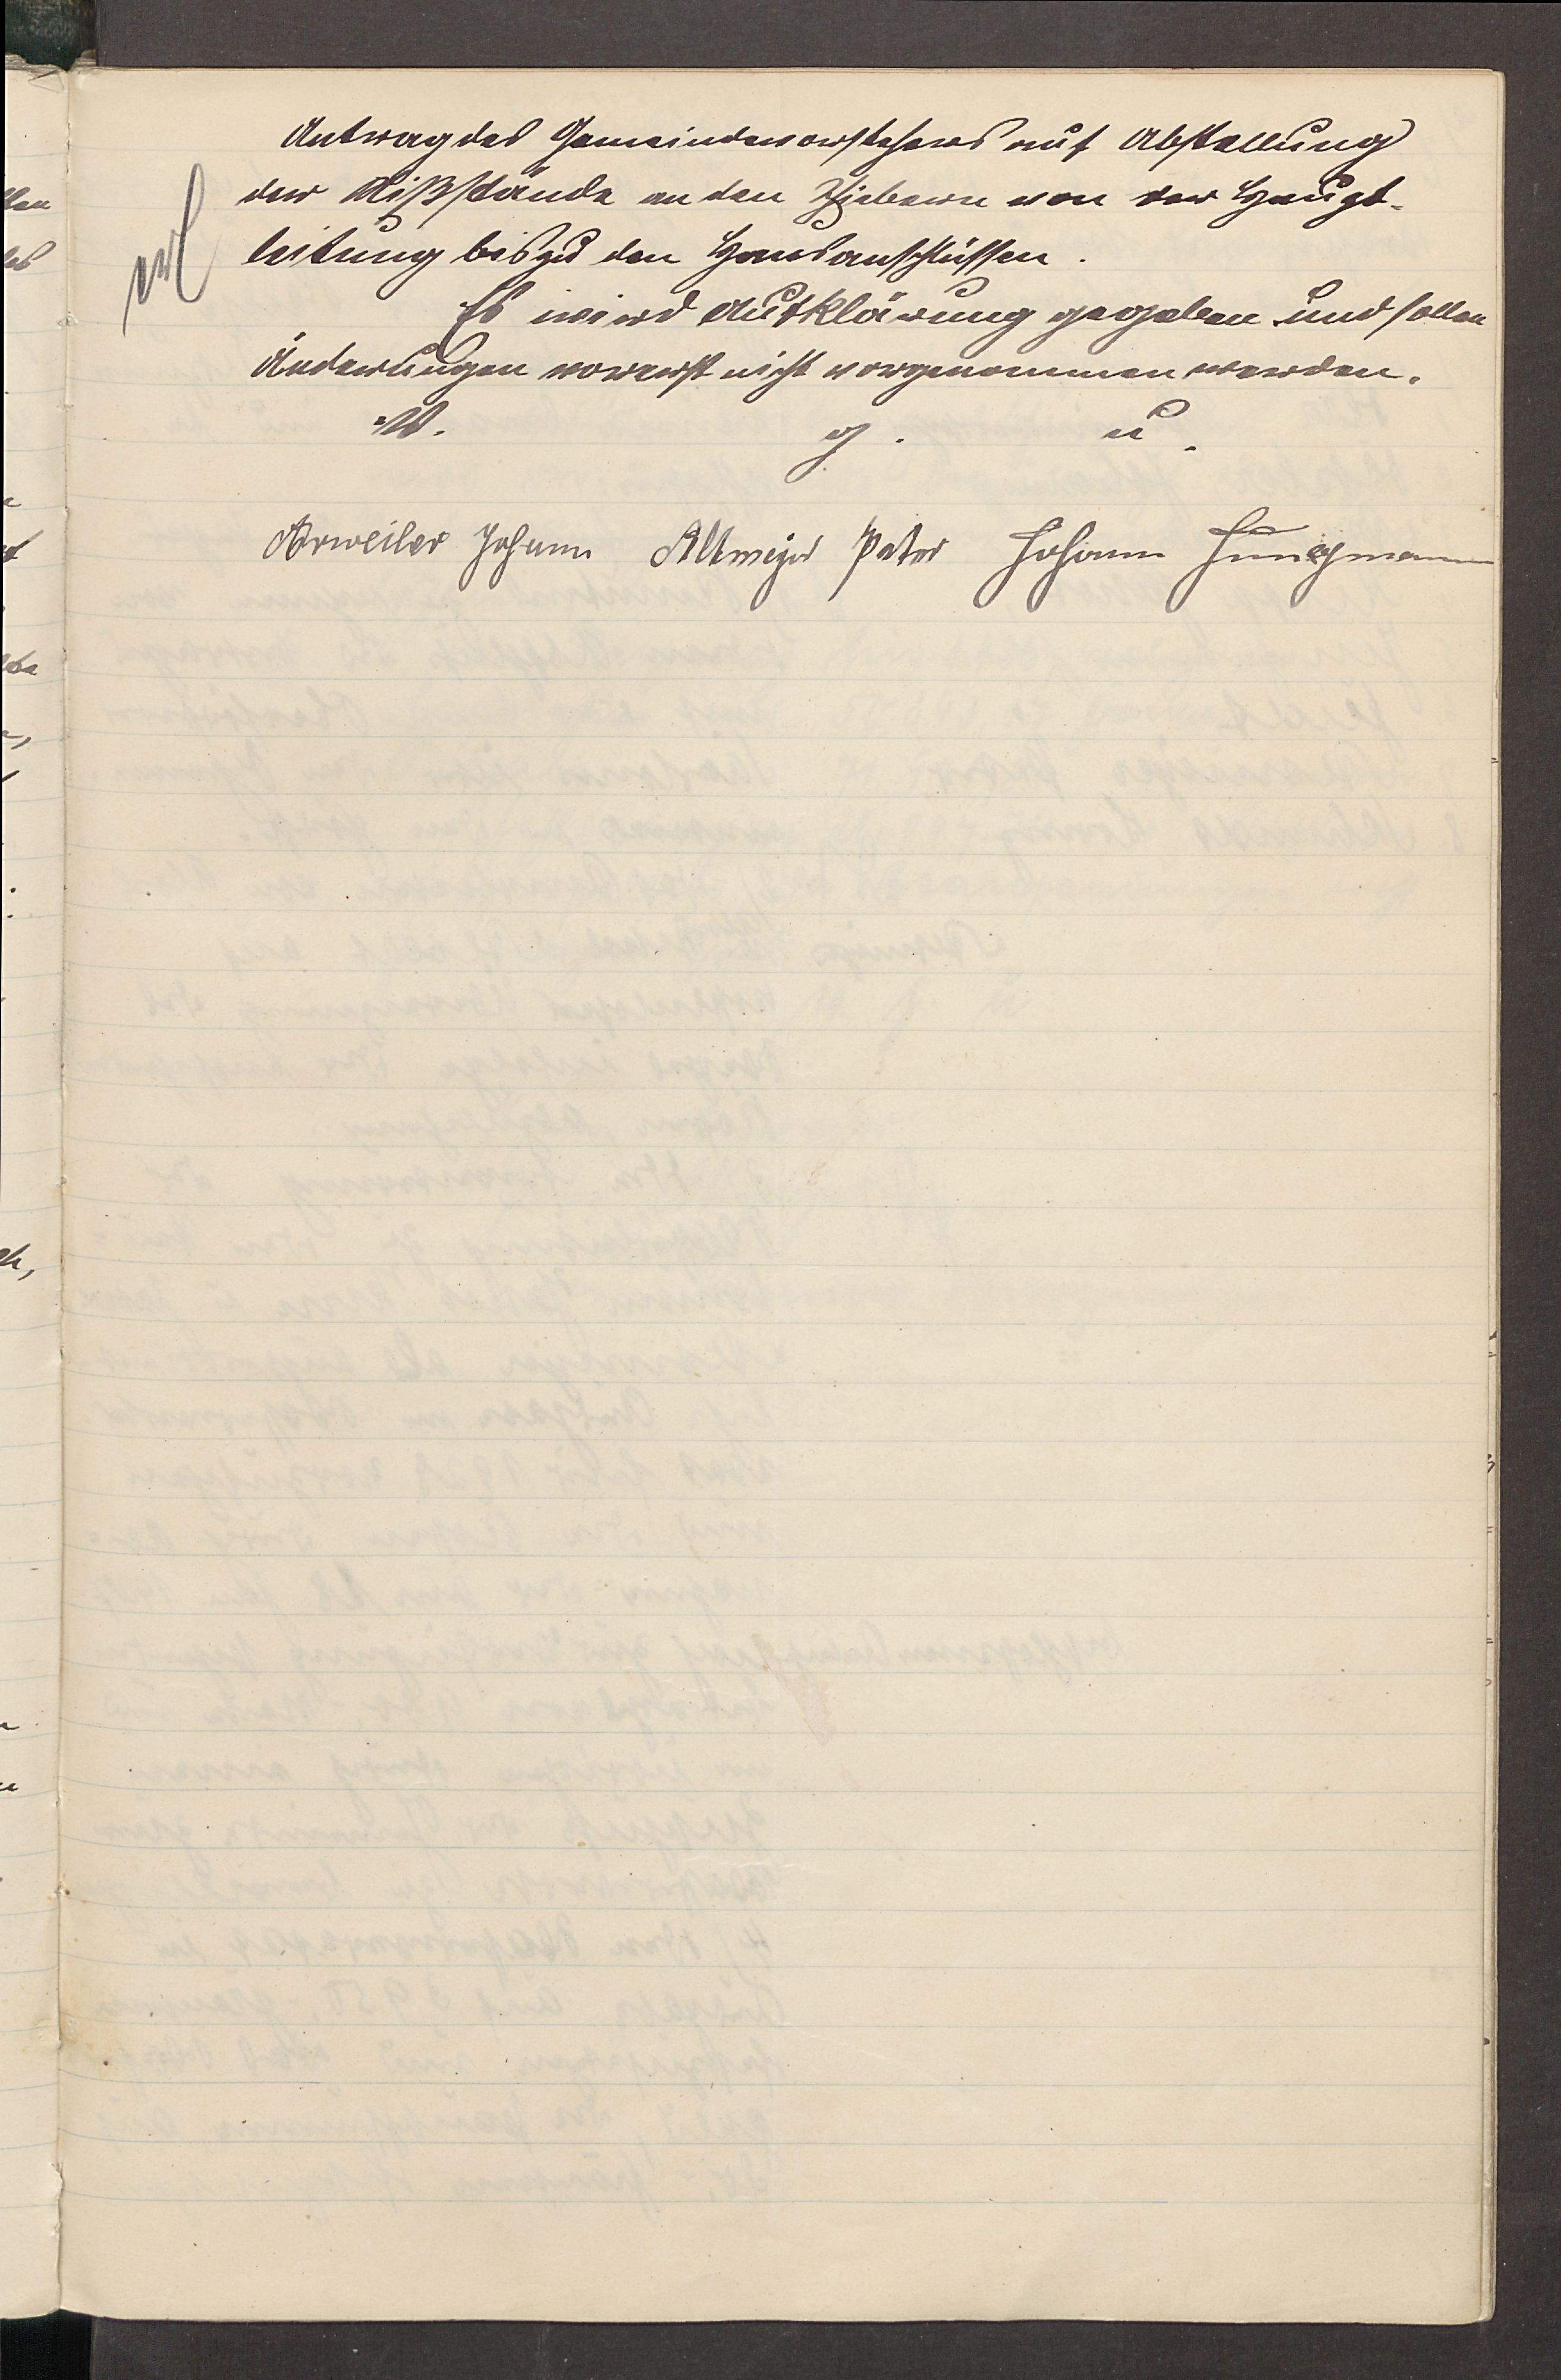 Antrag des Gemeindevorstehers auf Abstellung
der Mißstände an den Schiebern von der Haupt-
leitung bis zu den Hausanschlüssen.
Es wird Aufklärung gegeben und sollen
Änderungen vorerst nicht vorgenommen werden.
V. g. u.
Arweiler Johann Altmeyer Peter Johann Jungmann